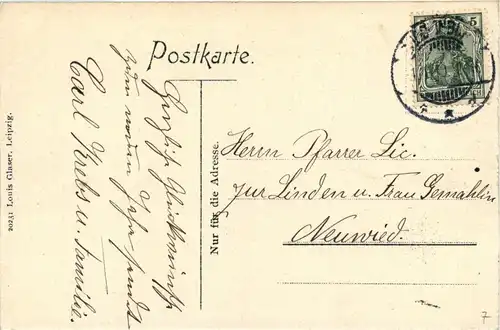 Postkarte.
5
Herzliche Glückwünsche
zum neuen Jahre sendet
Carl Krebs u. Familie.
Nur für die Adresse.
Herrn Pfarrer Lic.
zur Linden u. Frau Gemahlin
Neuwied.
20241 Louis Glaser, Leipzig.
7